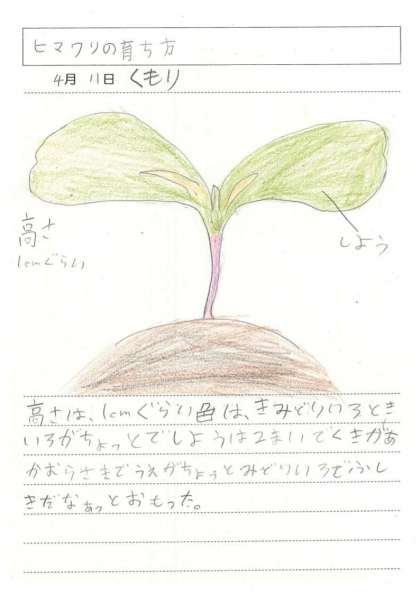 ヒマワリの育ち方
4月 11日 くもり
高さ
1cmぐらい
しよう
高さは、1cmぐらい色は、きみどりいろとき
いろがちょっとでしようは2まいでくきがあ
かむらさきでうえがちょっとみどりいろでふし
きだなぁっとおもった。